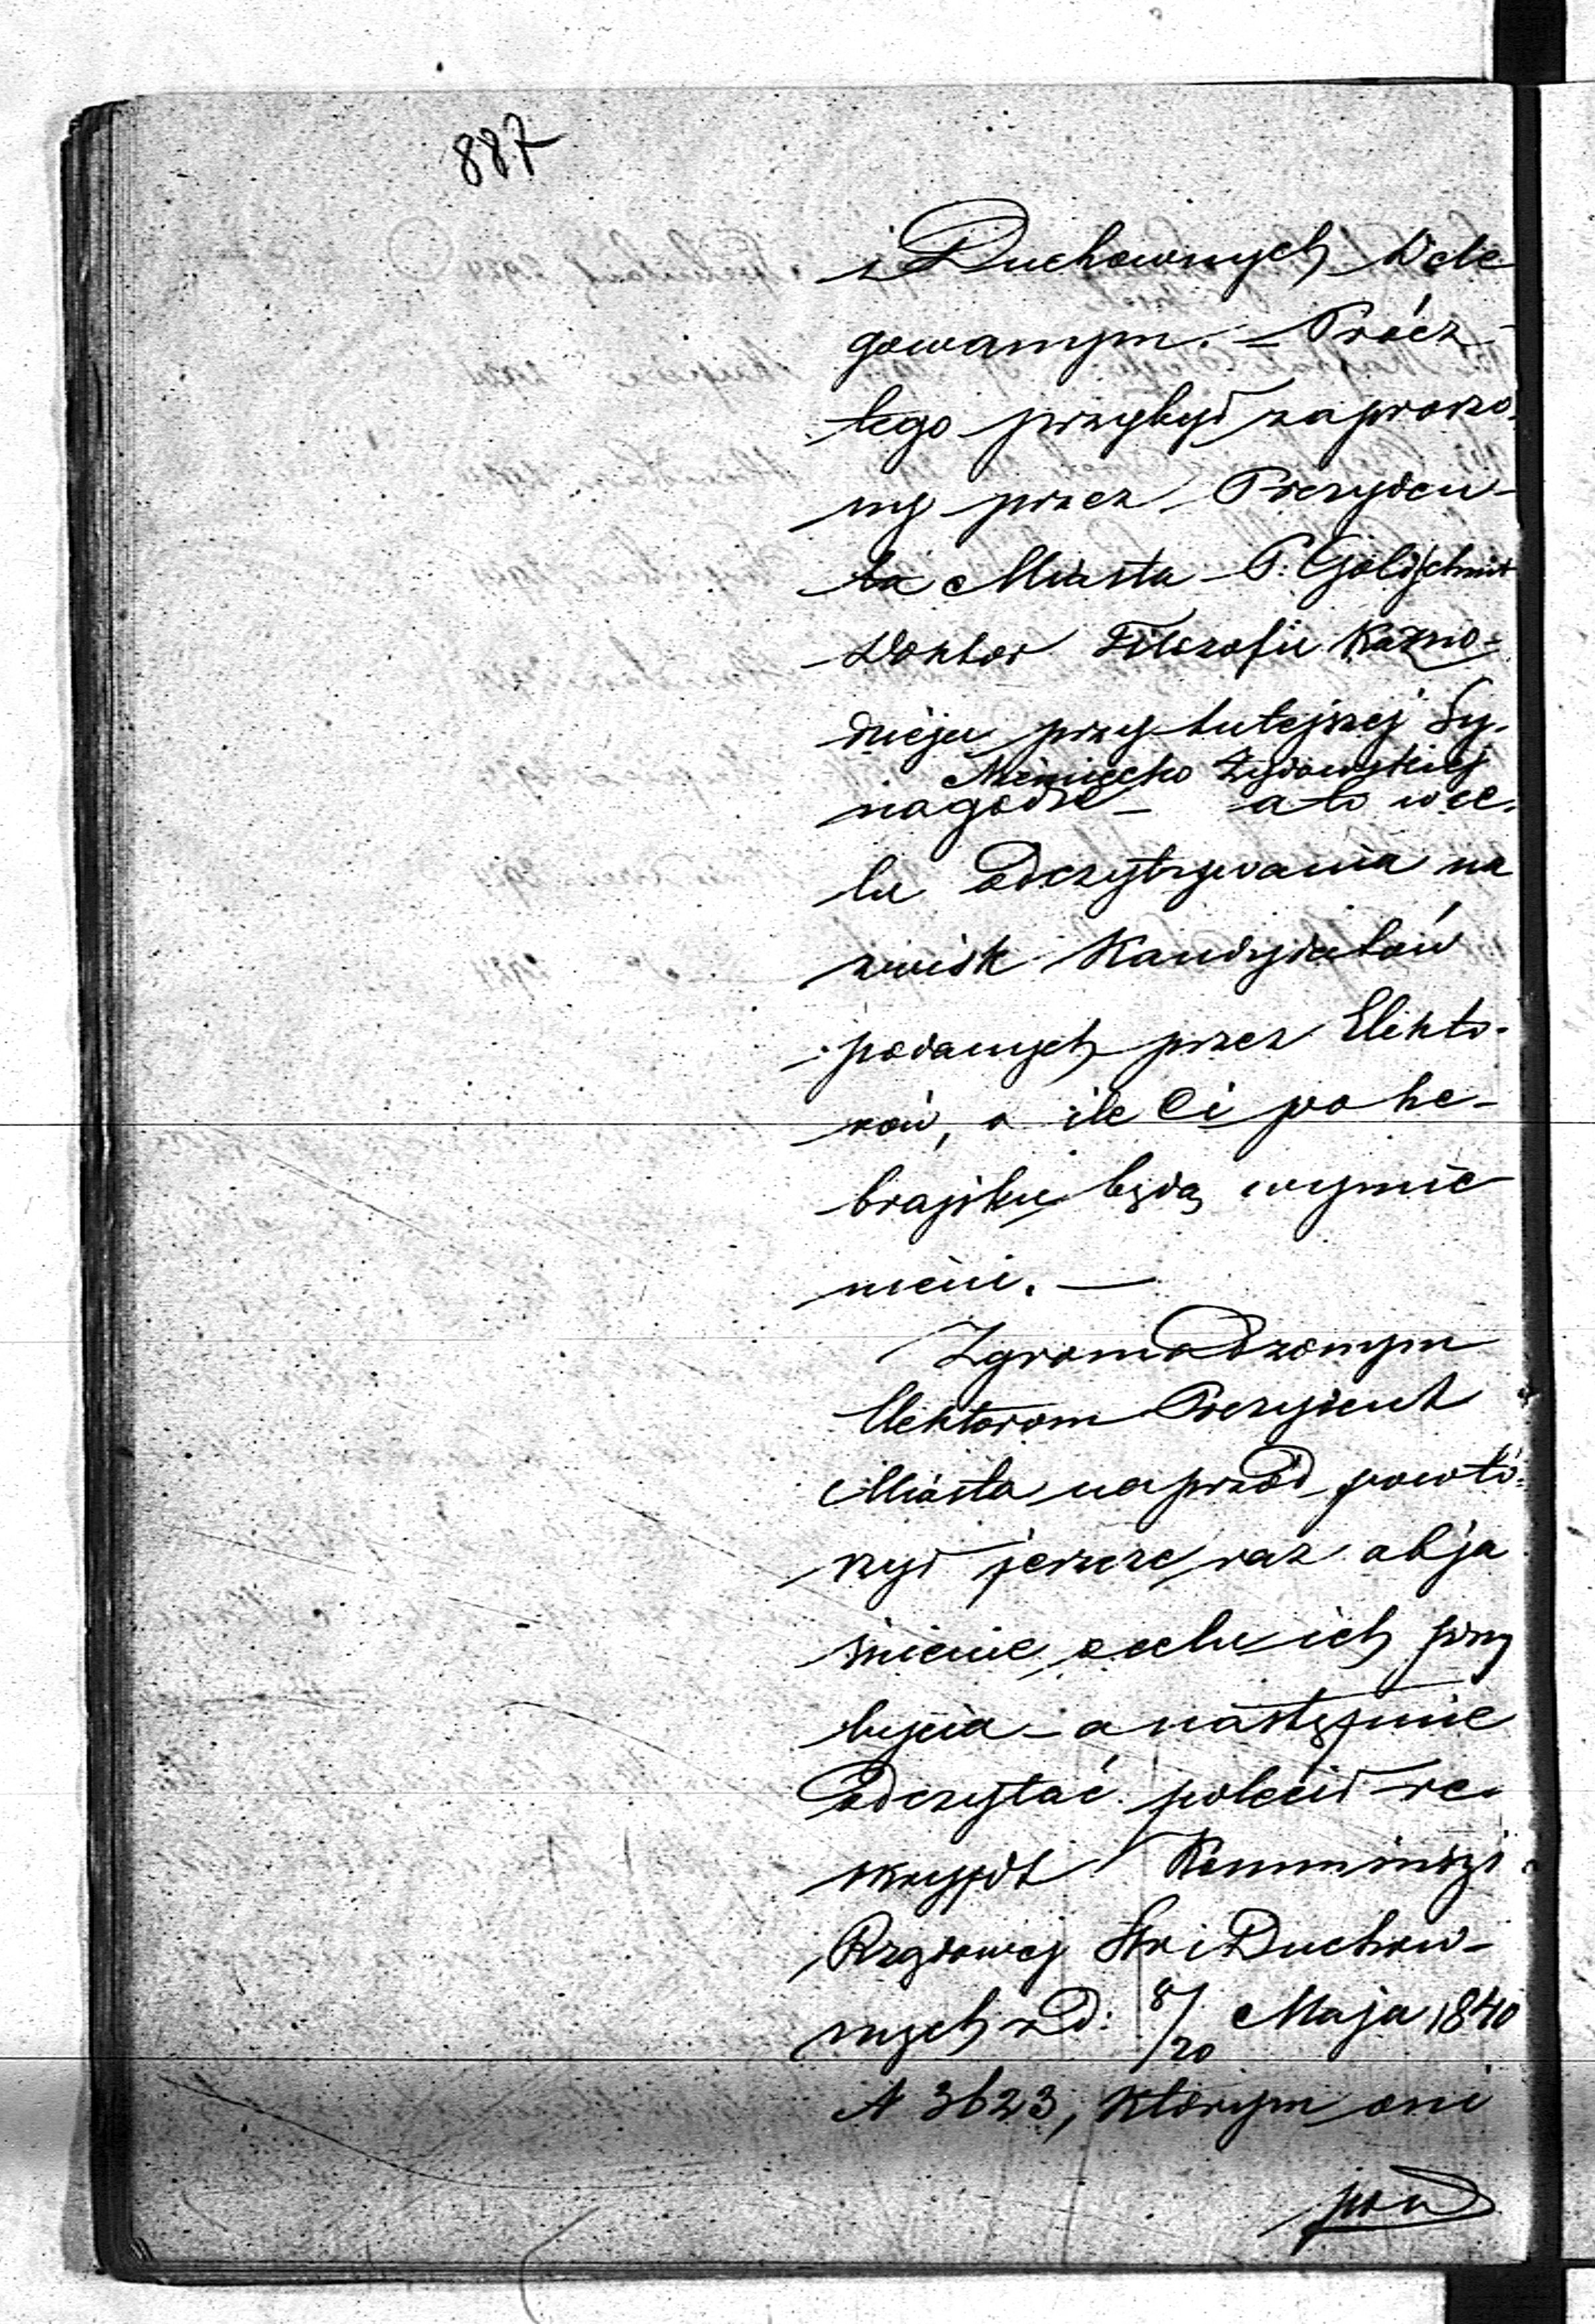 887
i Duchownych Dele
gowanym. – Prócz
tego przybył zaproszo
ny przez Prezyden-
ta Miasta P. Goldschmit
Doktor Filozofii Kazno-
dzieja przy tutejszej Sy-
Niemiecko Żydowskiej
nagodze – a to w ce-
lu odczytywania na
zwisk Kandydatów
podanych przez Elekto-
rów, o ile Ci po he-
brajsku będą wymie
nieni. —
Zgromadzonym
Elektorom Prezydent
Miasta naprzód powtó-
rzył jeszcze raz obja
śnienie o celu ich przy
bycia – a następnie
odczytać polecił re-
skrypt Kommissyi
Rządowej Spr i Duchow-
nych z D: 8/20 Maja 1840
N 3623, którym oni